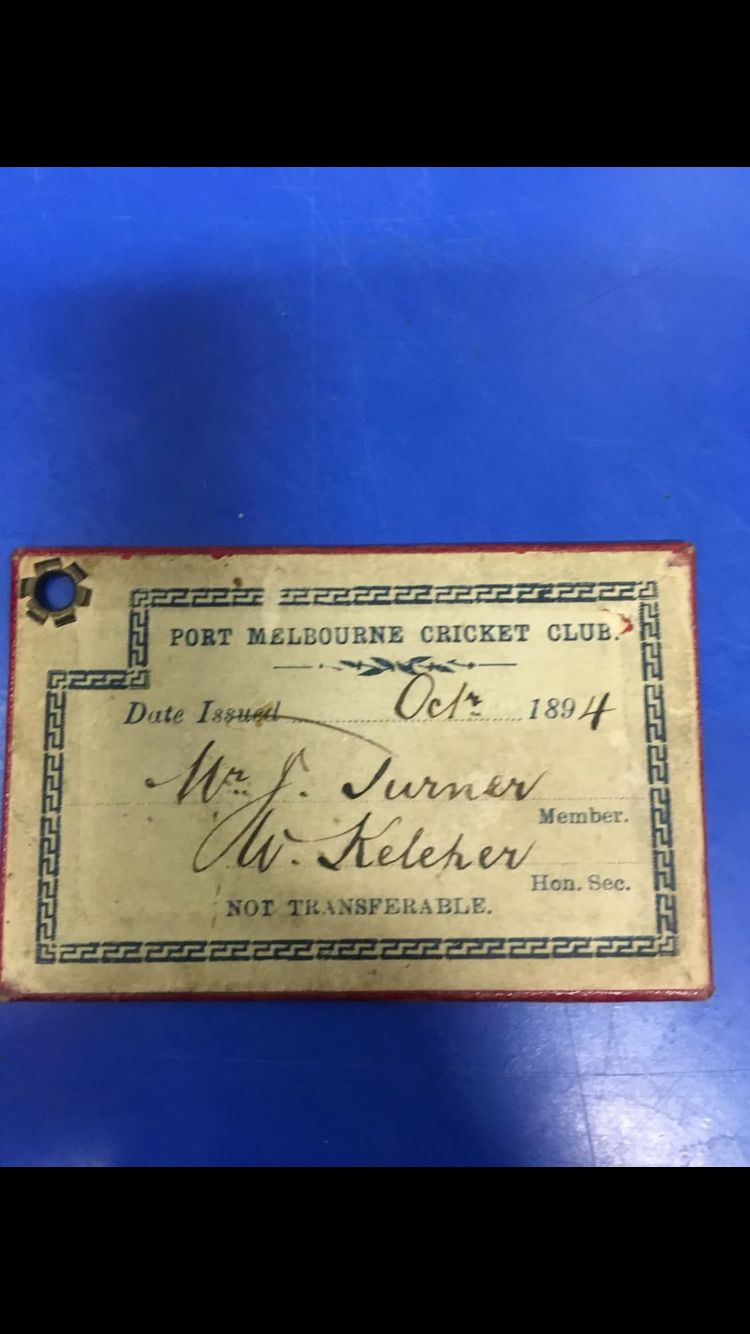 PORT MELBOURNE CRICKET CLUB.
Date Issued Octr 1894
Mr. J. Turner
Member.
W. Kelcher
Hon. Sec.
NOT TRANSFERABLE.